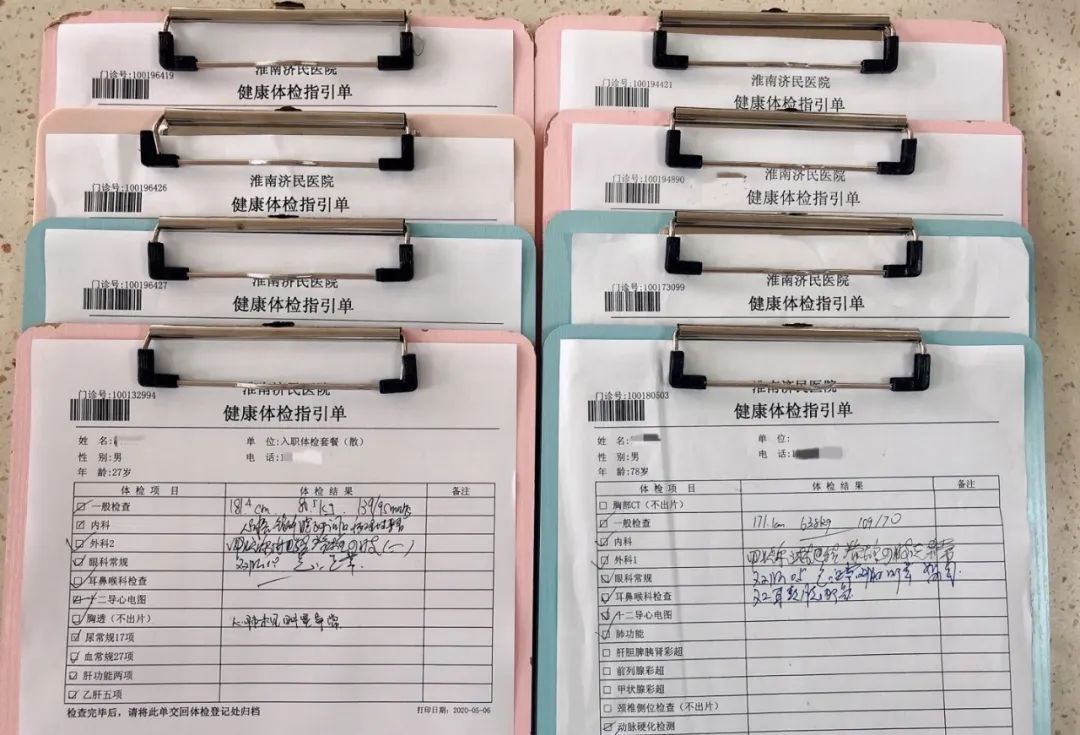 门诊号:100196419
淮南济民医院
健康体检指引单
门诊号:100196426
淮南济民医院
健康体检指引单
门诊号:100196427
淮南济民医院
健康体检指引单
门诊号:100132994
淮南济民医院
健康体检指引单
姓 名:
单 位:入职体检套餐（散）
性 别:男
电 话:1
年 龄:27岁
体 检 项 目 体 检 结 果 备注
一般检查 184cm 139/95mmHg
内科
外科2
眼科常规
耳鼻喉科检查
十二导心电图
胸透（不出片）
尿常规17项
血常规27项
肝功能两项
乙肝五项
检查完毕后，请将此单交回体检登记处归档 打印日期:2020-05-06
门诊号:100194421
淮南济民医院
健康体检指引单
门诊号:100194890
淮南济民医院
健康体检指引单
门诊号:100173099
淮南济民医院
健康体检指引单
门诊号:100180503
淮南济民医院
健康体检指引单
姓 名:
单 位:
性 别:男
电 话:1
年 龄:78岁
体 检 项 目 体 检 结 果 备注
胸部CT（不出片）
一般检查 171.1cm 63.8kg 109/70
内科
外科1
眼科常规
耳鼻喉科检查
十二导心电图
肺功能
肝胆脾胰肾彩超
前列腺彩超
甲状腺彩超
颈椎侧位检查（不出片）
动脉硬化检测